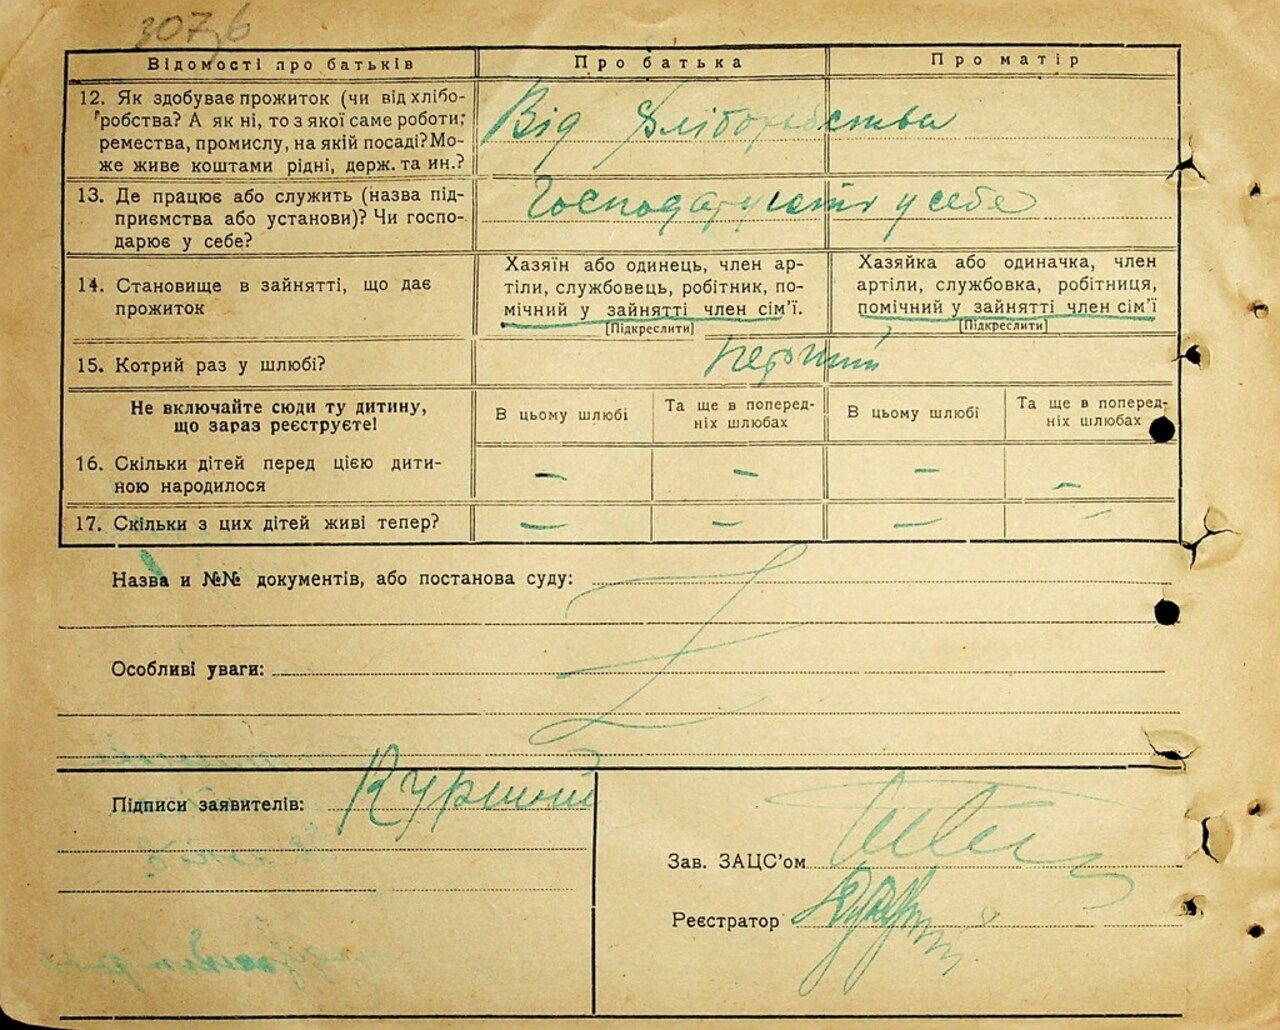 307,6
Відомості про батьків Про батька Про матір
12. Як здобуває прожиток (чи від хлібо-
робства? А як ні, то з якої саме роботи;
ремества, промислу, на якій посаді? Мо-
же живе коштами рідні, держ. та ин.?
Від хліборобства
13. Де працює або служить (назва під-
приємства або установи)? Чи госпо-
дарює у себе?
Господарують у себе
14. Становище в зайнятті, що дає
прожиток
Хазяїн або одинець, член ар-
тіли, службовець, робітник, по-
мічний у зайнятті член сім’ї.
[Підкреслити]
Хазяйка або одиначка, член
артіли, службовка, робітниця,
помічний у зайнятті член сім’ї
[Підкреслити]
15. Котрий раз у шлюбі?
Перший
Не включайте сюди ту дитину,
що зараз реєструєте!
В цьому шлюбі
Та ще в поперед-
ніх шлюбах
В цьому шлюбі
Та ще в поперед-
ніх шлюбах
16. Скільки дітей перед цією дити-
ною народилося
– – – –
17. Скільки з цих дітей живі тепер?
– – – –
Назва и №№ документів, або постанова суду:
Особливі уваги:
Підписи заявителів:
Зав. ЗАЦС’ом
Реєстратор